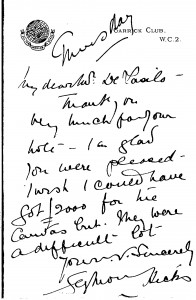 GARRICK CLUB.
W.C.2.
Thursday
My dear Mr. De
Thank you
very much for your
note — I am glad
you were pleased —
I wish I could have
got £2000 for his
but. they were
a difficult lot
Yours Sincerely
Seymour Hicks